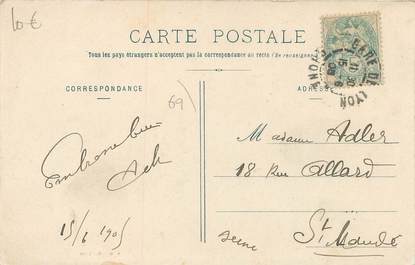 10 €
CARTE POSTALE
Tous les pays étrangers n'acceptent pas la correspondance au recto (Se renseigner
GARE DE LYON
CORRESPONDANCE
ADRESSE
69
Madame Adler
18 Rue Allard
St Mandé
Seine
15/6 1905